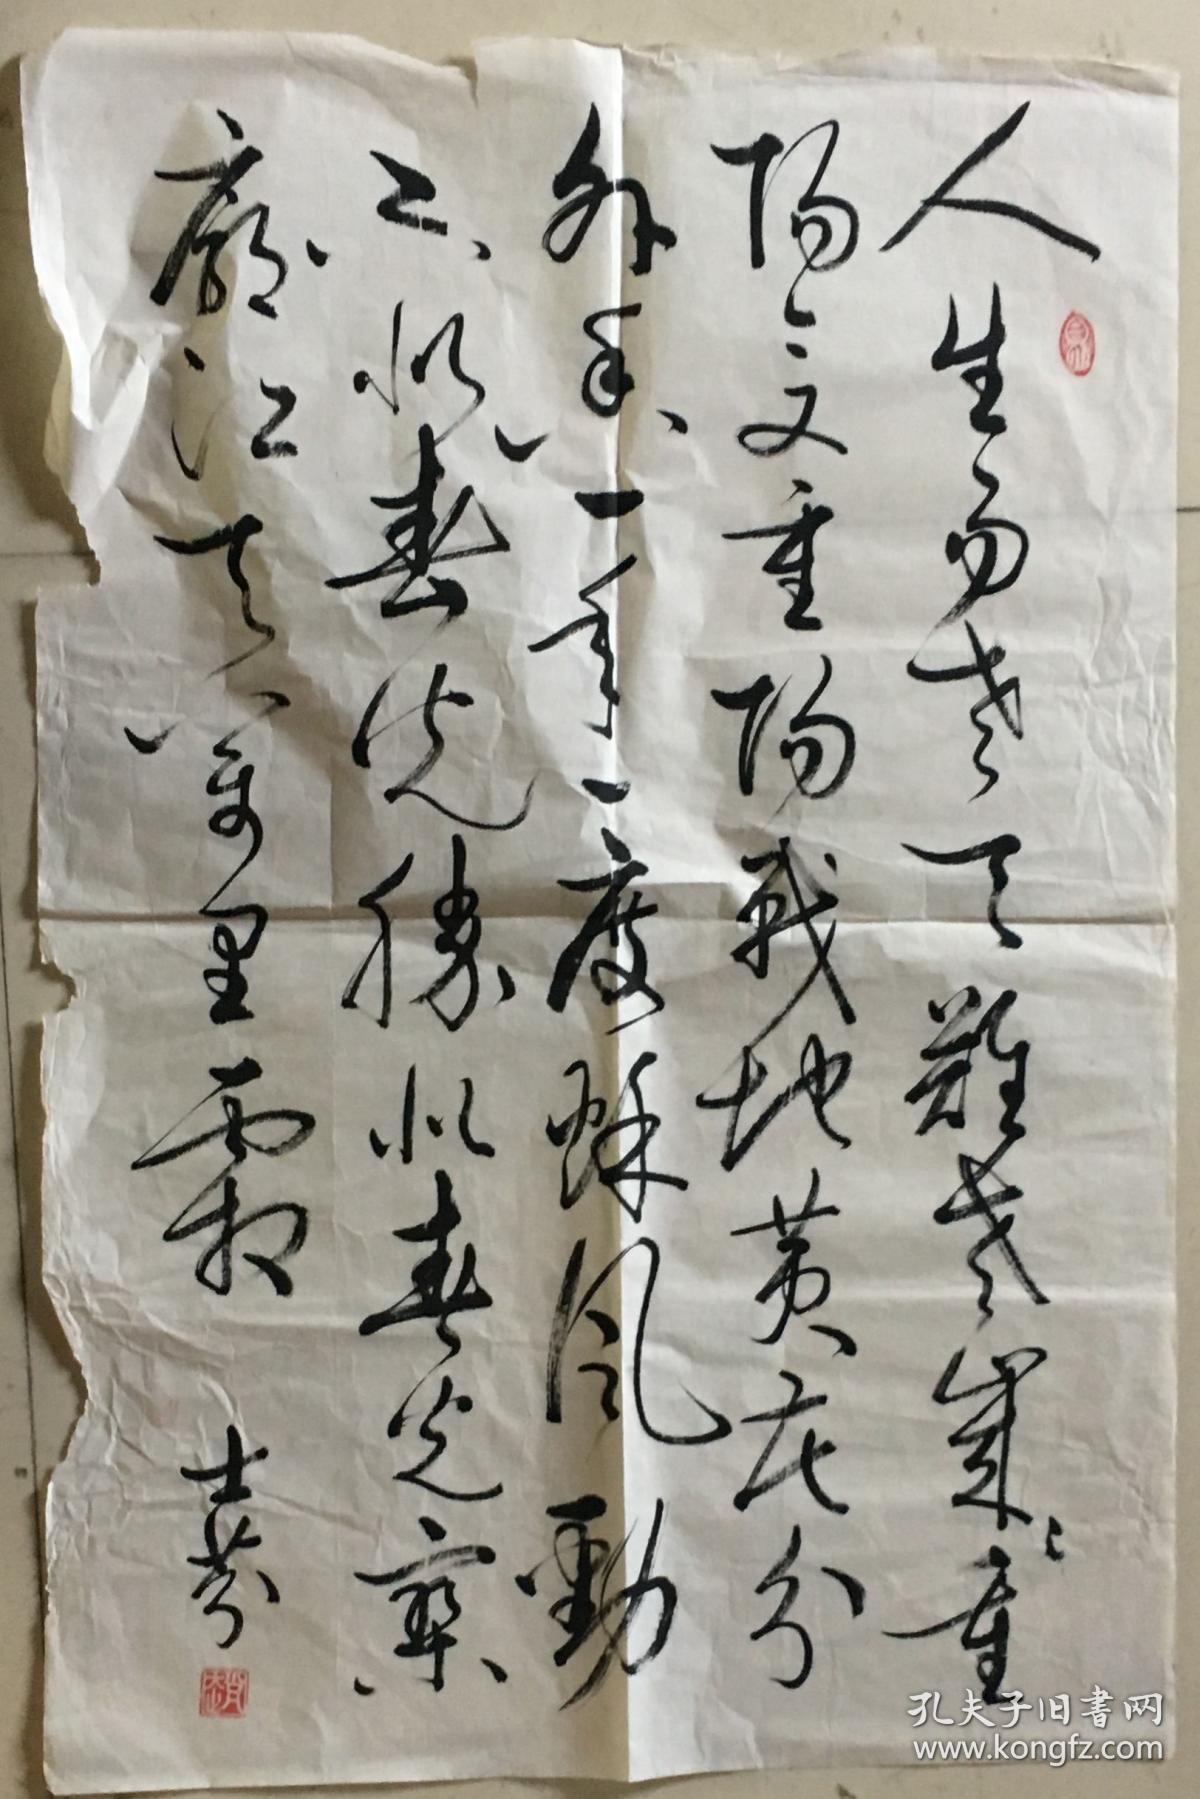 人生易老天難老歲〻重
陽今又重陽戰地黄花分
外香一年一度秋風勁
不似春光勝似春光寥
廓江天萬里霜
士芬
孔夫子旧书网
www.kongfz.com